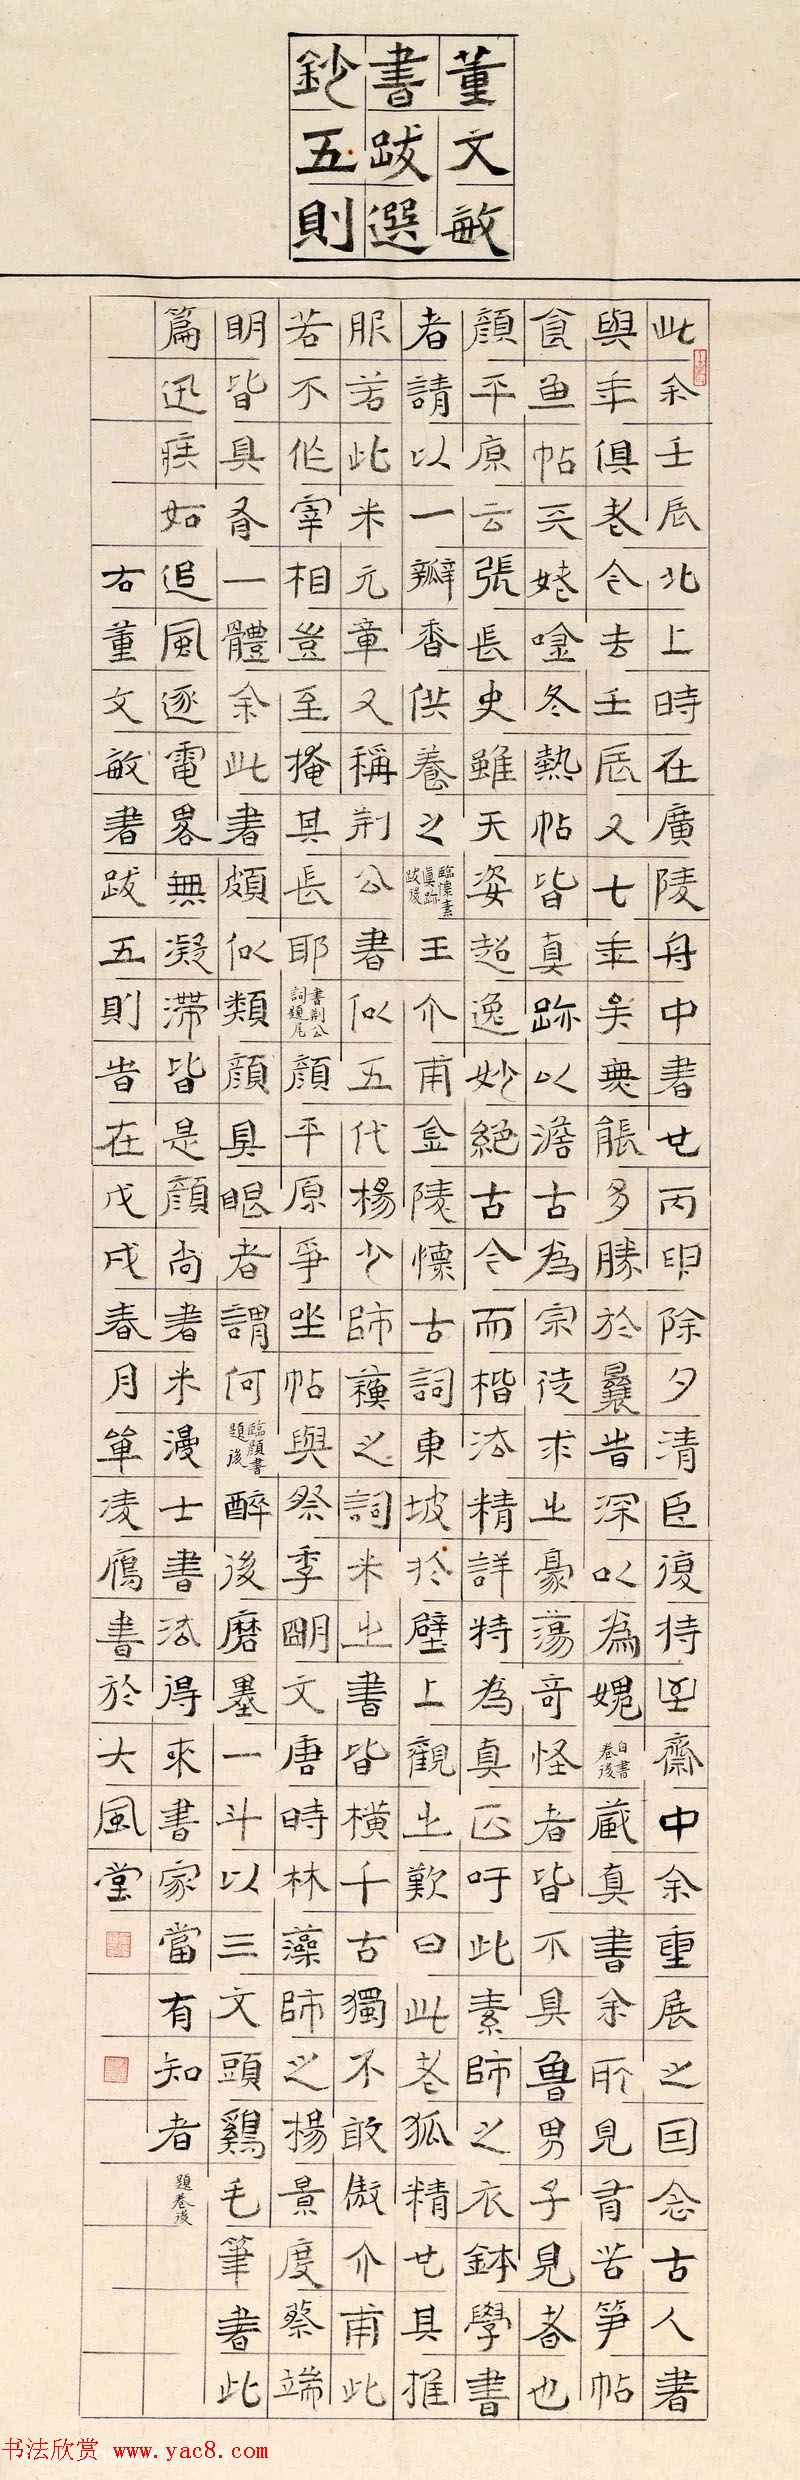 董文敏
書跋選
鈔五則
此余壬辰北上時在廣陵舟中書也丙申除夕清臣復持至齋中余重展之因念古人書
與年俱老今去壬辰又七年矣無能多勝於曩昔深以為媿自書卷後藏真書余所見有苦筍帖
食魚帖天姥唫冬熱帖皆真跡以澹古為宗徒求之豪蕩奇怪者皆不具魯男子見者也
顏平原云張長史雖天姿超逸妙絕古今而楷法精詳特為真正吁此素師之衣鉢學書
者請以一瓣香供養之臨懷素真跡跋後王介甫金陵懷古詞東坡於壁上觀之歎曰此老狐精也其推
服若此米元章又稱荆公書似五代楊少師蘓之詞米之書皆橫千古獨不敢傲介甫此
若不作宰相豈至掩其長耶書荆公詞題尾顏平原爭坐帖與祭季明文唐時林藻師之楊景度蔡端
明皆具有一體余此書頗似類顏具眼者謂何臨顏書題後醉後磨墨一斗以三文頭鷄毛筆書此
篇迅疾如追風逐電畧無凝滯皆是顏尚書米漫士書法得來書家當有知者題卷後
右董文敏書跋五則旹在戊戌春月單凌鴈書於大風堂
书法欣赏 www.yac8.com